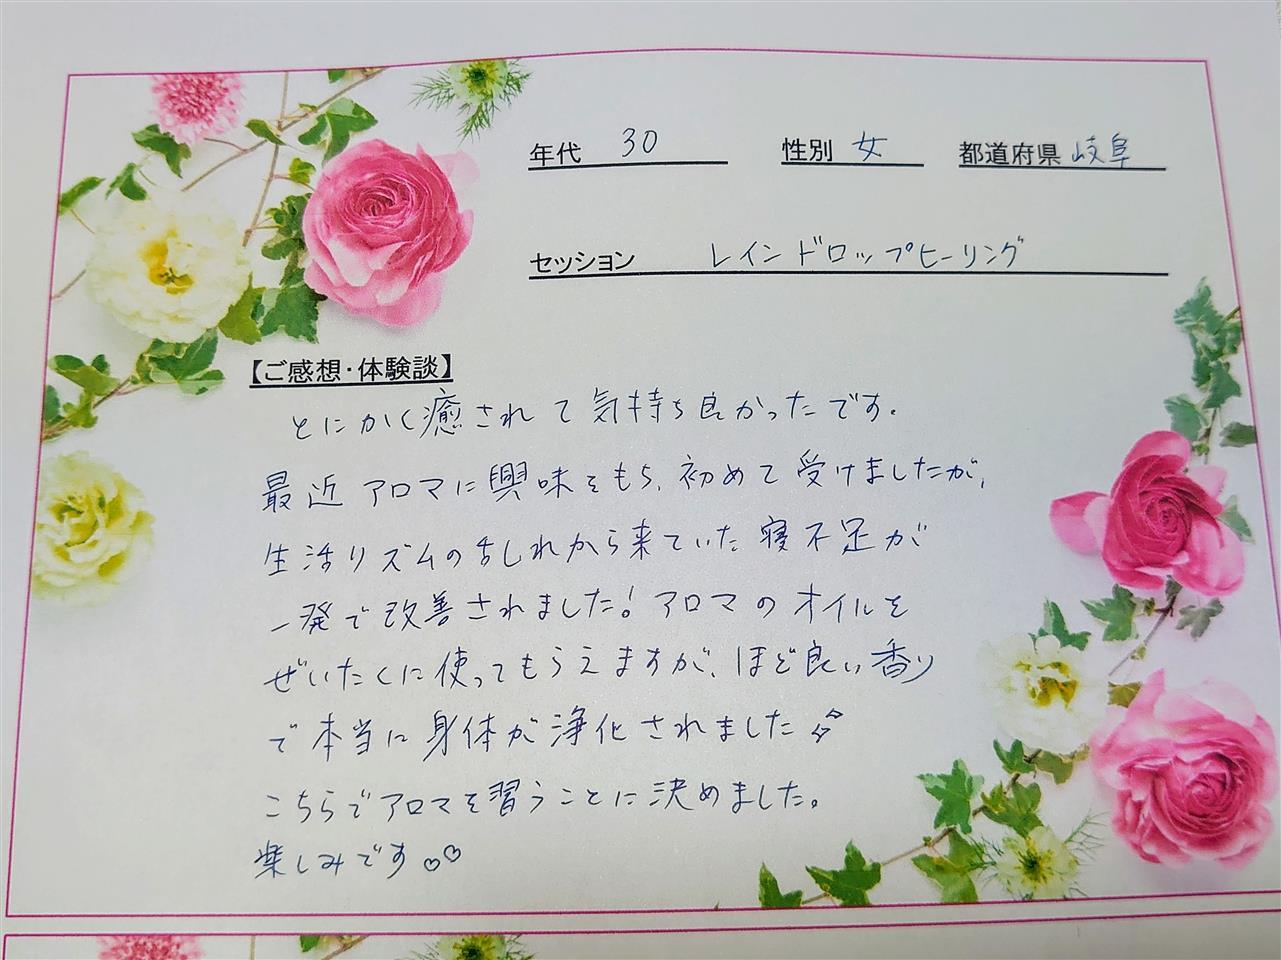 年代 30 性別 女 都道府県 岐阜
セッション レインドロップヒーリング
【ご感想・体験談】
とにかく癒されて気持ち良かったです。
最近アロマに興味をもち、初めて受けましたが、
生活リズムの乱れから来ていた寝不足が
一発で改善されました!アロマのオイルを
ぜいたくに使ってもらえますが、ほど良い香り
で本当に身体が浄化されました
こちらでアロマを習うことに決めました。
楽しみです♡♡